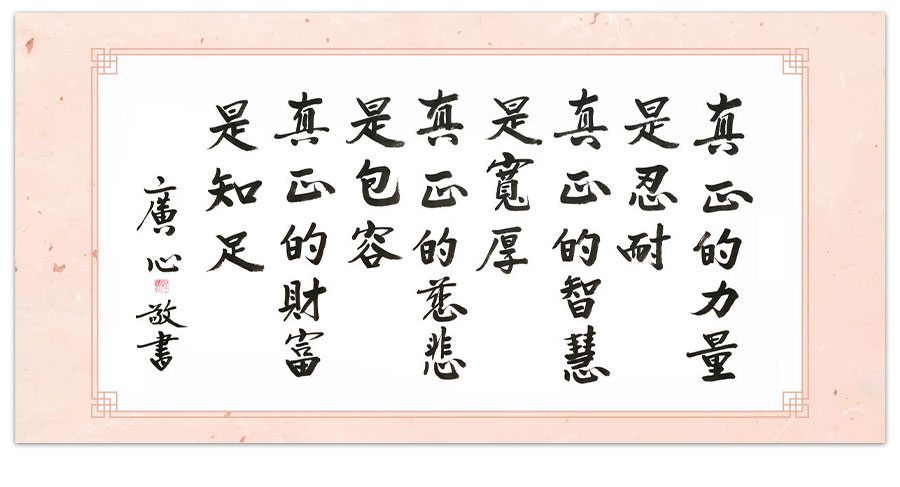 真正的力量
是忍耐
真正的智慧
是寬厚
真正的慈悲
是包容
真正的財富
是知足
廣心
敬書